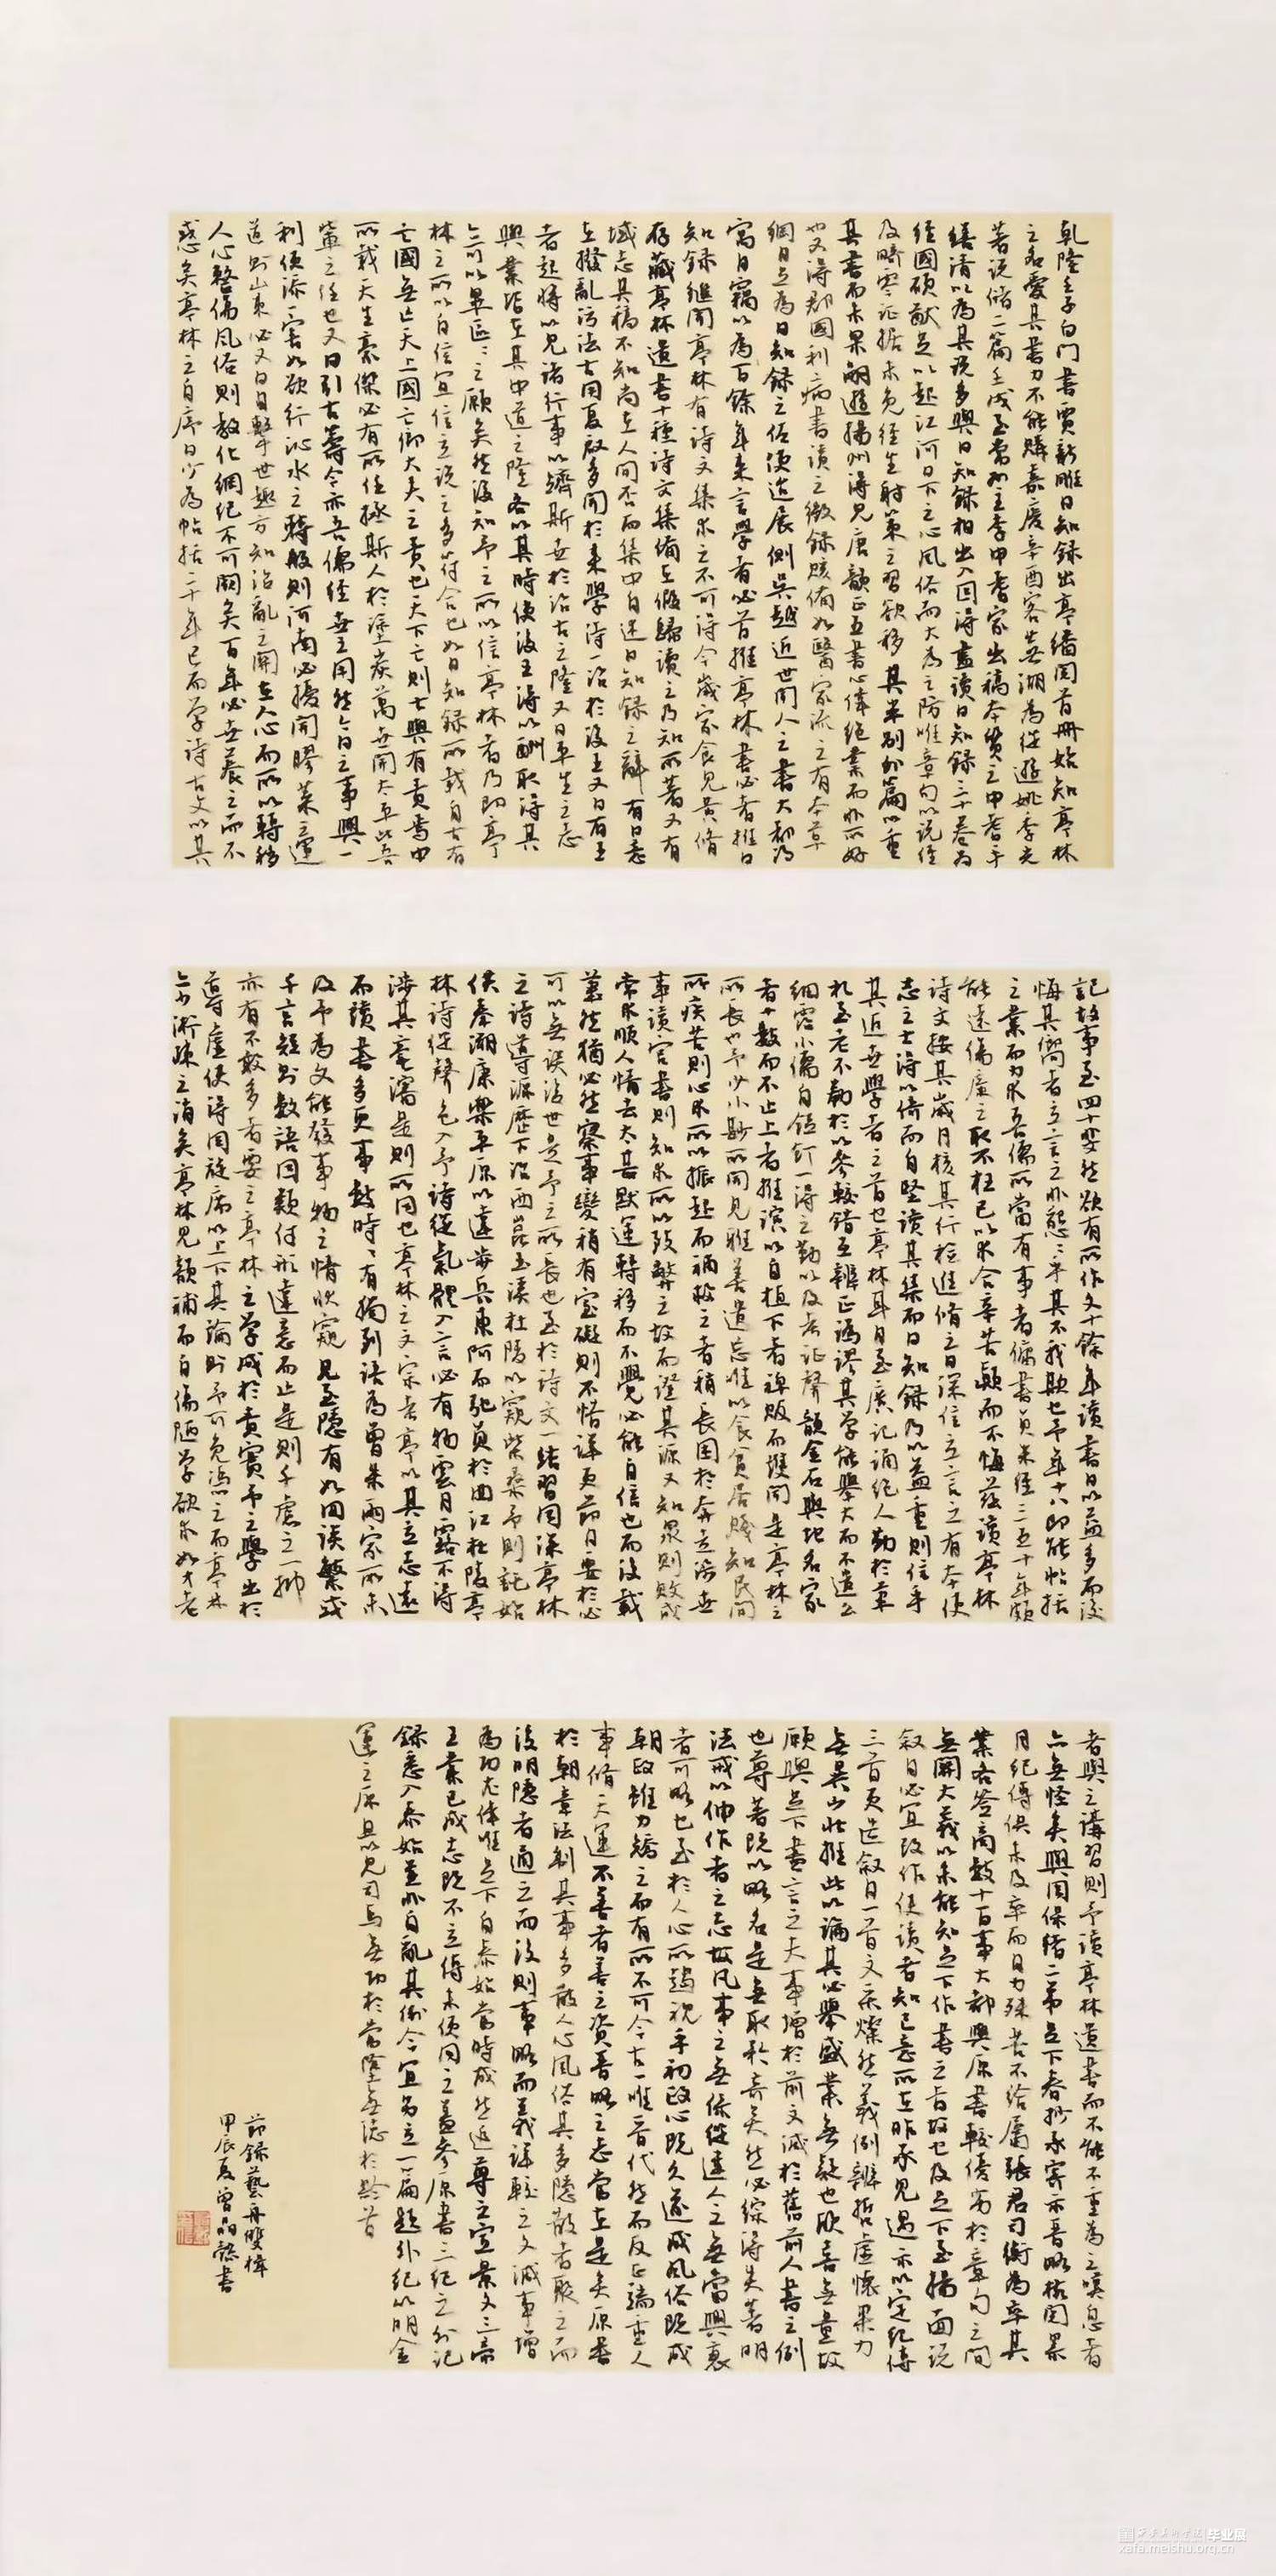 乾隆壬子白門書賈新雕日知錄出亭繙閱首冊始知亭林
之名愛其書力不能購嘉慶辛酉客蕪湖為從遊姚季光
著說儲二篇壬戌至常州主李申耆家出稿本質之申耆手
繕清以為其說多與日知錄相出入因得盡讀日知錄三十卷為
經國碩猷足以起江河日下之人心風俗而大為之防唯章句以說經
及畸零證據未免經生射策之習欲移其半別為外篇以重
其書而未果嗣遊揚州得見唐韻正五書心偉絕業而非所好
也又得郡國利病書讀之徵錄賅備如醫家流之有本草
綱目立為日知錄之佐使迨展側吳越近世聞人之書大都得
寓目竊以為百餘年來言學者必首推亭林書必首推日
知錄繼聞亭林有詩文集求之不可得今歲家食見黃脩
存藏亭林遺書十種詩文集備在假歸讀之乃知所著又有
域志其稿不知尚在人間否而集中自述日知錄之辭有曰意
在撥亂滌污法古用夏啟多聞於來學待一治於後王又曰有王
者起將以見諸行事以躋斯世於治古之隆又曰平生之志
與業皆在其中道之隆各以其時使後王得以酌取得其
亦可以畢區區之願矣然後知予之所以信亭林者乃即亭
林之所以自信宜信立說之多符合也如日知錄所載自古有
亡國無亡天下亡國亡卿大夫之責也天下亡則士與有責焉中
所載天生豪傑必有所任拯斯人於塗炭為萬世開太平此吾
輩之任也又曰引古籌今亦吾儒經世之用然今日之事興一
利便添一害如欲行沁水之轉般則河南必擾開膠萊之運
道則山東必又曰目擊世趨方知治亂之關在人心而所以轉移
人心整傷風俗則教化綱紀不可闕矣百年必世養之而不
惑矣亭林之自序曰少為帖括二十年已而學詩古文以其
記故事至四十斐然欲有所作又十餘年讀書日以益多而後
悔其嚮者立言之非殷殷乎其不我欺也予年十八即能帖括
之業而力求吾儒所當有事者傭書負米經三五十年頗
能遠傷廉之取不枉己以求合辛苦顛而不悔茲讀亭林
詩文按其歲月核其行檢進脩之日深信立言之有本使
志之士得以倚而自堅讀其集而日知錄乃以益重則信乎
其近世學者之首也亭林耳目至廣記誦絕人勤於草
札至老不勌於以參較錯互辨正譌謬其學能舉大而不遺
細雲小儒自飣餖一得之勤以及考證聲韻金石輿地名家
者十數而不止上者推演以自植下者裨販而攫聞是亭林之
所長也予少小鄙所聞見雖善遺忘唯以食貧居賤知民間
所疾苦則心求所以振起而補救之者稍長困於奔走涉世
事讀官書則知求所以致弊之故而證其源又知泉則敗成
常求順人情去太甚默運轉移而不覺必能自信也而後載
筆然猶必然察事變稍有窒礙則不惜詳更節目要於必
可以無誤治世是予之所長也至於詩文一結習同深亭林
之詩導源歷下沿西崑玉溪杜陵以窺柴桑予則託始
供奉溯康樂平原以達步兵東阿而馳驟於曲江杜陵亭
林詩從聲色入予詩從氣體入言必有物雲月露不得
涉其毫濡是則所同也亭林之文宗考亭以其立志遠
而讀書多更事故時時有獨到語為曾朱兩家所未
及予為文能發事物之情狀窺見至隱有如面談繁或
千言短則數語因類付形達意而止是則千慮之一得
亦有不敢多者要之亭林之學成於責實予之學出於
導虛使得周旋席以上下其論則予可免憑之而亭林
亦少術疏之誚矣亭林見韻補而自傷陋學欲求如才老
者與之講習則予讀亭林遺書而不能不重為之嘆息者
亦無怪矣興周保緒二第足下春抄承寄示晉略核閱累
月紀傳俱未及卒而目力殊苦不給屬張君司衡為卒其
業各簽商數十百事大都與原書較優劣於章句之間
無關大義以未能知足下作書之旨故也及足下至揚面說
敘目必宜改作使讀者知己意所在昨承見過示以定紀傳
三首更造敘目一首文采燦然義例辨晰虛懷果力
無異少壯推此以論其必舉盛業無疑也欣喜無量故
願與足下盡言之夫事增於前文減於舊前人書之例
也尊著既以略名是無取於奇矣然必綜得失著明
法戒以伸作者之志故凡事之無係從違人之無當興衰
者可略也至於人心所趨視乎初政心既久遂成風俗既成
朝政雖力矯之而有所不可今古一唯晉代然而反正端重人
事脩天運不善者善之資晉略之志當在是矣原書
於朝章法制其事多散人心風俗其多隱散者聚之而
後明隱者通之而後則事略而義詳較之文減事增
為功尤偉唯足下自泰始當時成然追尊之宣景文三帝
王業已成志既不立傳未便同之蓋參原書三紀之外記
錄悉入泰始並非自亂其例今宜為立一篇題外紀以明金
運之原且以見司馬無功於當隆無德於黔首
節錄藝舟雙楫
甲辰夏曾晶懿書
西安美術學院畢业展
xafa.meishu.org.cn